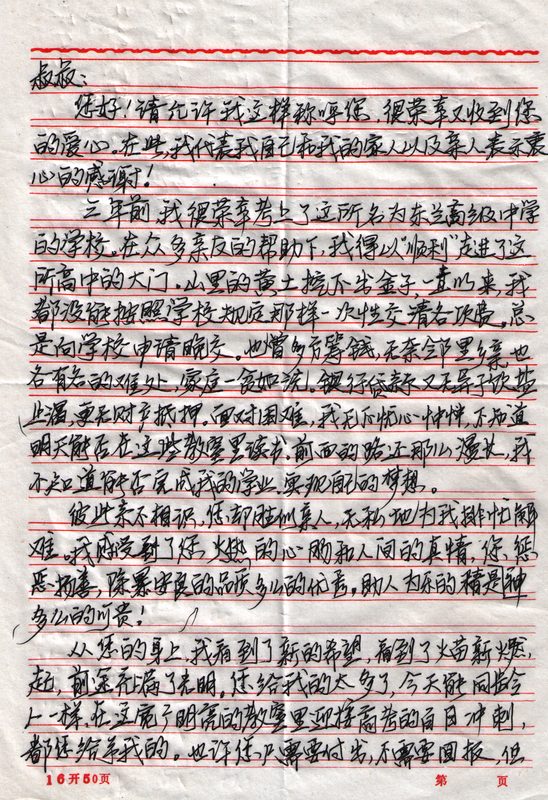 叔叔:
您好!请允许我这样称呼您,很荣幸又收到您
的爱心。在此,我代表我自己和我的家人以及亲人表示衷
心的感谢!
三年前,我很荣幸考上了这所名为东兰高级中学
的学校。在众多亲友的帮助下,我得以“顺利”走进了这
所高中的大门。山里的黄土挖不出金子,一直以来,我
都没能按照学校规定那样一次性交清各项费。总
是向学校申请晚交。也曾多方筹钱,无奈邻里乡亲也
各有各的难处,家庭一贫如洗。银行贷款又无异于饮盐
止渴,更无财产抵押。面对困难,我无不忧心忡忡,不知道
明天能否在这些教室里读书。前面的路还那么漫长,我
不知道能否完成我的学业,实现自己的梦想。
彼此素不相识,您却胜似亲人,无私地为我排忧解
难。我感受到了您火热的心肠和人间的真情,您惩
恶扬善,除暴安良的品质多么的优秀。助人为乐的精神是
多么的可贵!
从您的身上,我看到了新的希望,看到了火苗新燃
起,前途充满了光明。您给我的太多了,今天能同
一样,在这宽广明亮的教室里迎接高考的百日冲刺,
都您给予我的。也许您只需要付出,不需要回报,但
16开50页 第 页